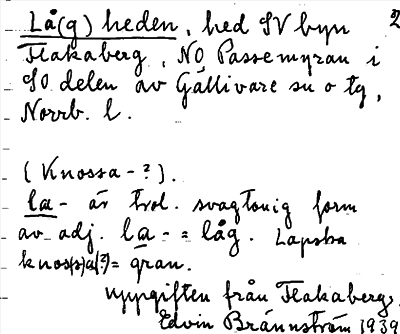 Lå(g)heden, hed SV byn 2
Flakaberg, NO Passemyran i
SO delen av Gällivare sn o tg,
Norrb. l.
(Knossa-?).
la- är trol. svagtonig form
av adj. la- = låg. Lapska
knos(s)a(?) = gran.
uppgiften från Flakaberg,
Edvin Brännström 1939